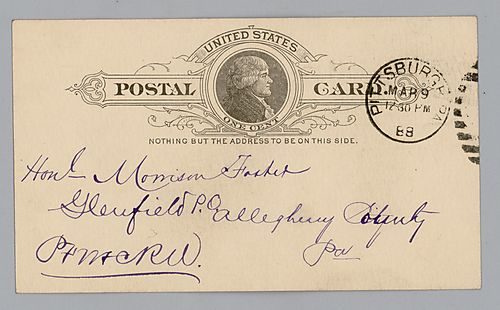 UNITED STATES
POSTAL CARD.
ONE CENT
NOTHING BUT THE ADDRESS TO BE ON THIS SIDE.
PITTSBURGH, PA
MAR 9
12-30 PM
88
Honl. Morrison Foster
Glenfield P.O. Allegheny County
P F W & C R W. Pa